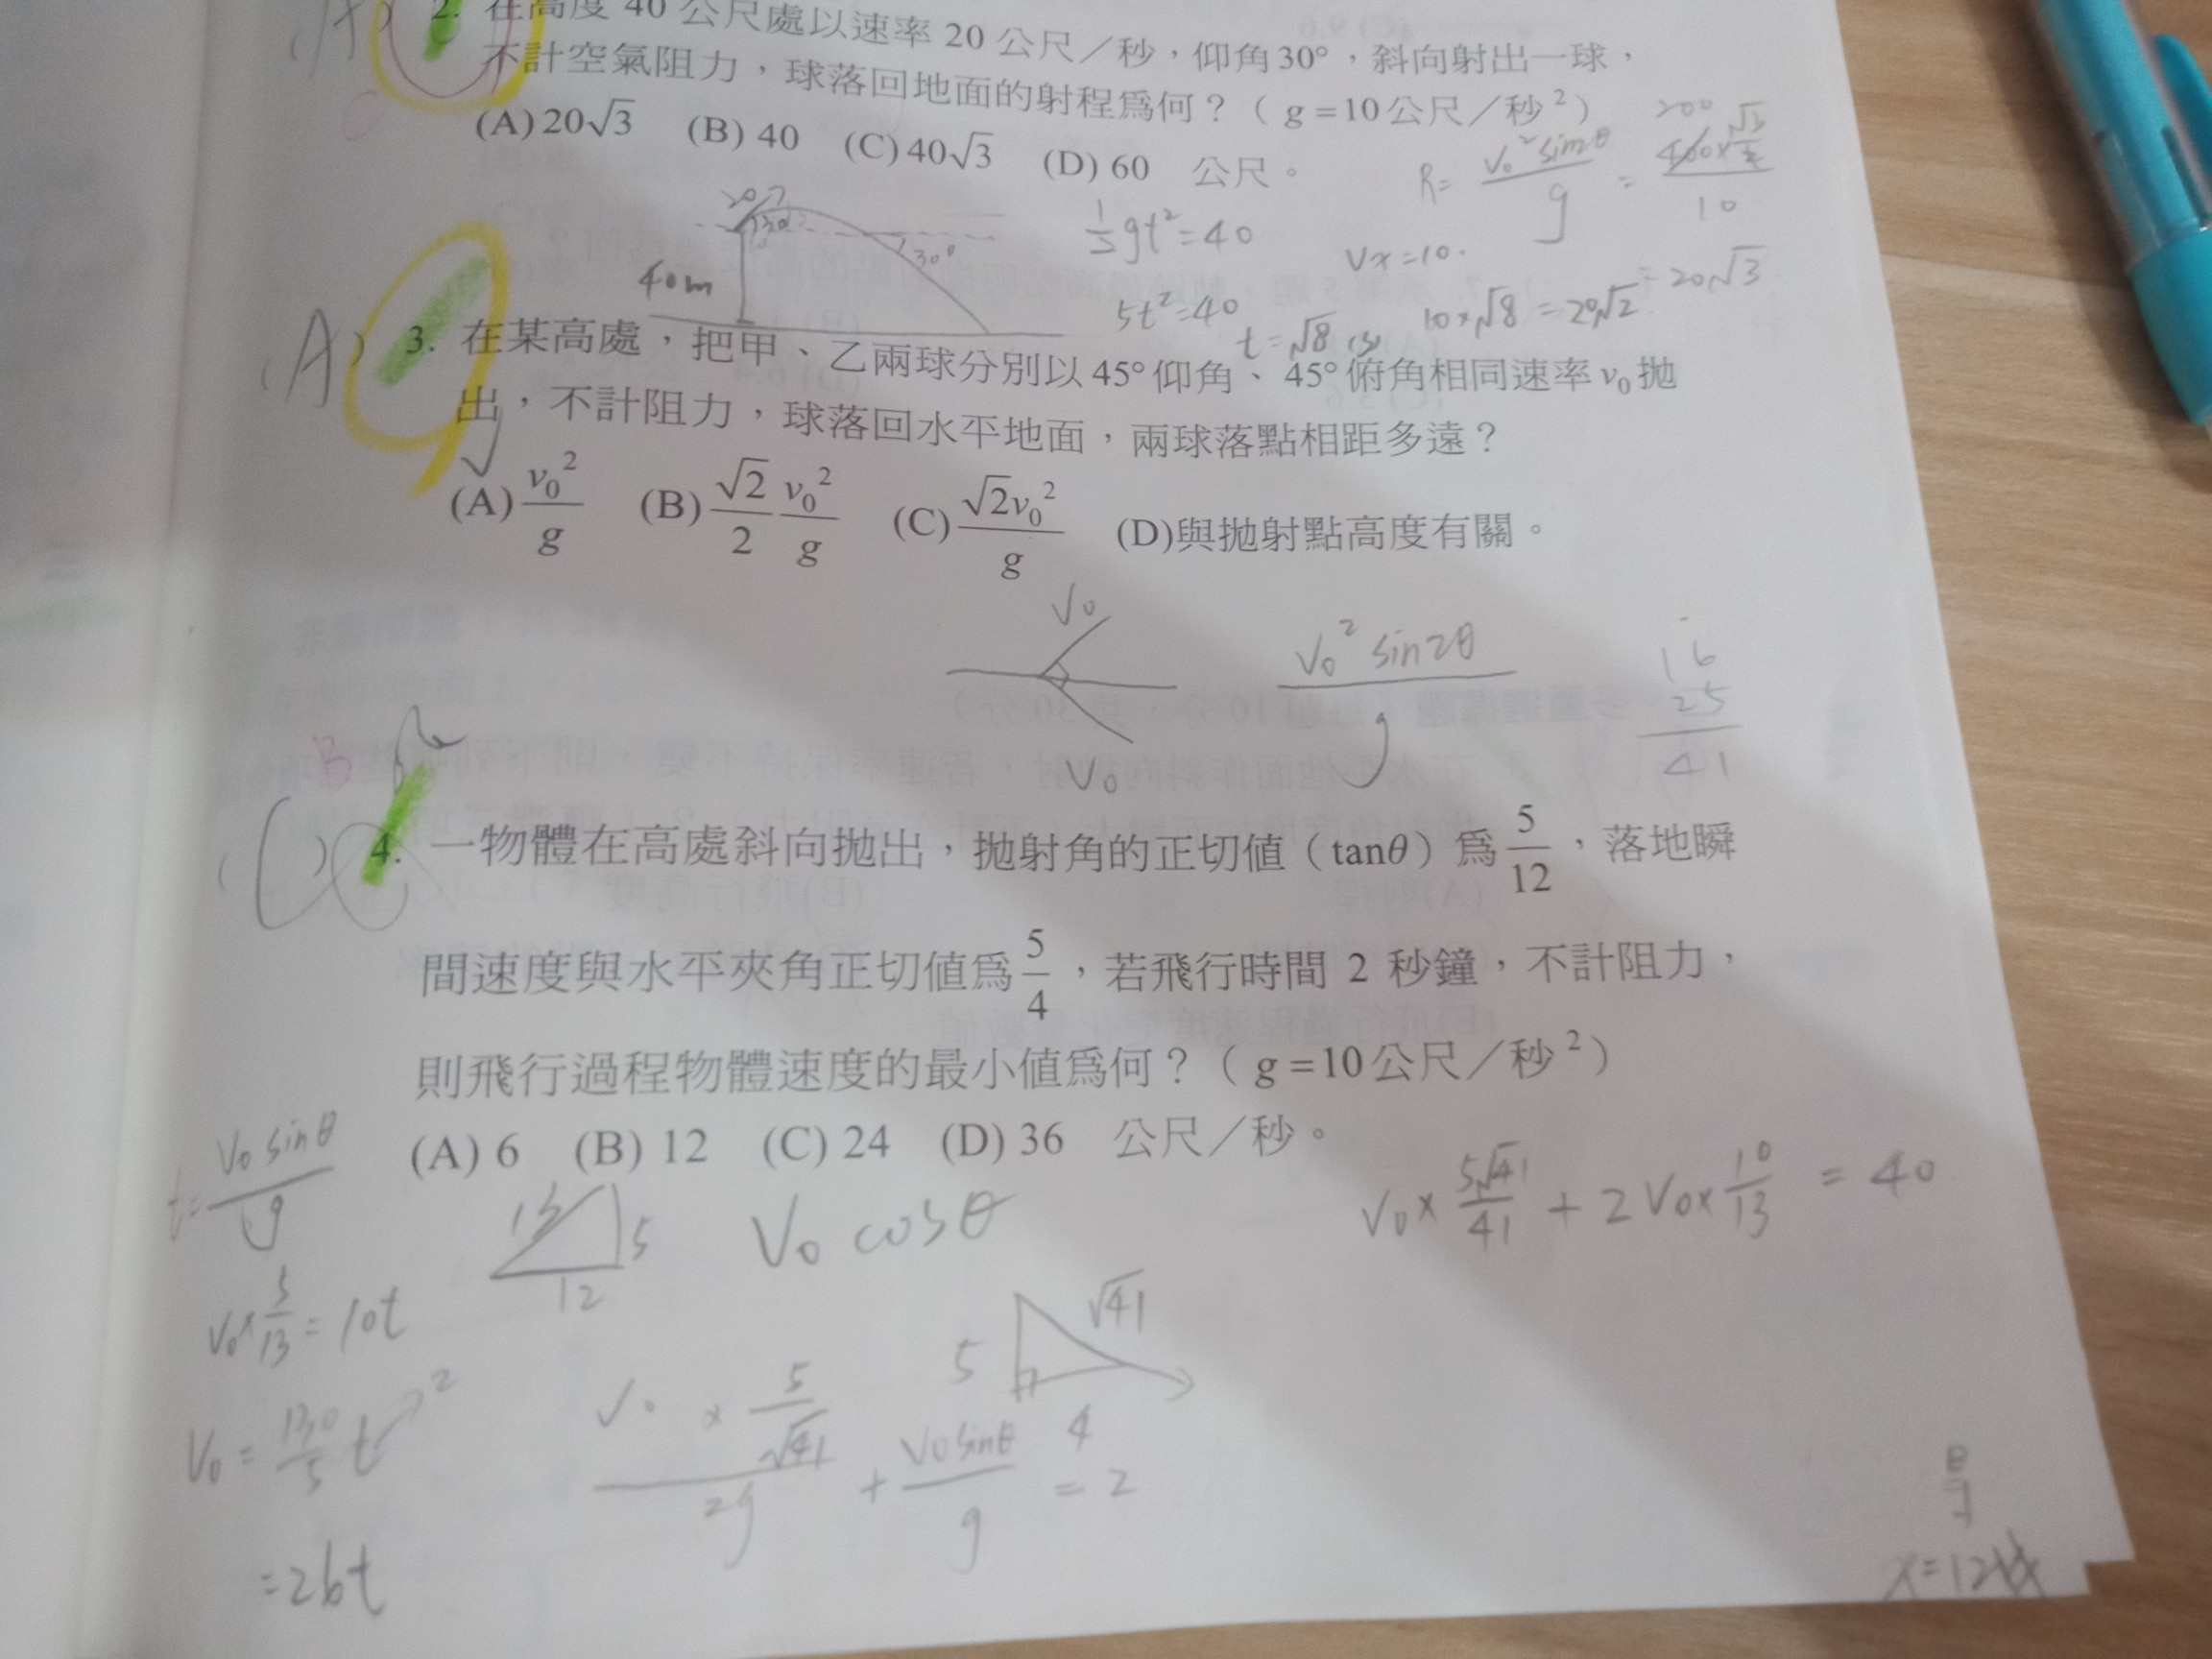 (A) 2. 在高度 40 公尺處以速率 20 公尺／秒，仰角30°，斜向射出一球，
不計空氣阻力，球落回地面的射程爲何？（ g=10公尺／秒²）
(A) 20√3 (B) 40 (C) 40√3 (D) 60 公尺。
C
R= v₀²sin2θ/g =
200
10
20√3
20
30°
30°
40m
½gt²=40
5t²=40
t=√8 (s)
Vx=10.
10×√8=20√2
(A) 3. 在某高處，把甲、乙兩球分別以45°仰角、45°俯角相同速率v₀拋
出，不計阻力，球落回水平地面，兩球落點相距多遠？
(A) v₀²/g (B) √2/2 v₀²/g (C) √2v₀²/g (D)與拋射點高度有關。
V₀
V₀
V₀² sin2θ/g
16
25
41
B
( ) 4. 一物體在高處斜向拋出，拋射角的正切値（tanθ）爲5/12，落地瞬
間速度與水平夾角正切値爲5/4，若飛行時間 2 秒鐘，不計阻力，
則飛行過程物體速度的最小値爲何？（ g=10公尺／秒²）
(A) 6 (B) 12 (C) 24 (D) 36 公尺／秒。
t= V₀ sinθ/g
13
5
12
V₀ cosθ
V₀× 5√41/41 + 2V₀× 10/13 = 40
V₀× 5/13 = 10t
5
√41
4
V₀ = 130/5 t
2
V₀ × 5/√41 / 2g + V₀sinθ/g = 2
=26t